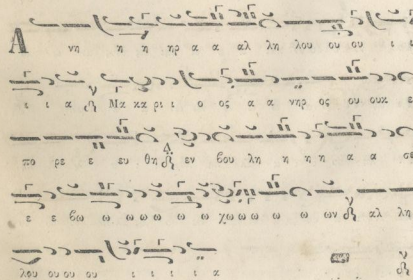 Α νη η η ηρ α α αλ λη λου ου ου ι
ι ι α Μα κα ρι ι ο ος α α νηρ ος ου ουκ ε
πο ρε ε ευ θη εν βου λη η η η α α σε
ε ε βω ω ω ω ω ω χω ω ω ω ω ων αλ λη
λου ου ου ου ι ι ι ι α